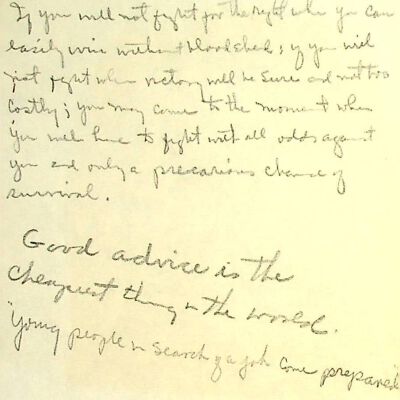 If you will not fight for the right when you can
easily win without bloodshed; if you will
not fight when victory will be sure and not too
costly; you may come to the moment when
you will have to fight with all odds against
you and only a precarious chance of
survival.
Good advice is the
cheapest thing in the world.
"Young people in search of a job come prepared"